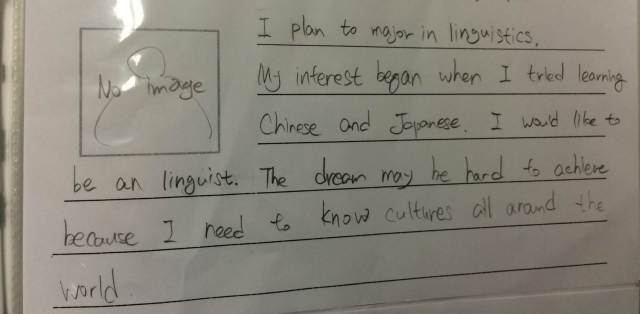 I plan to major in linguistics.
No image
My interest began when I tried learning
Chinese and Japanese. I would like to
be an linguist. The dream may be hard to achieve
because I need to know cultures all around the
world.